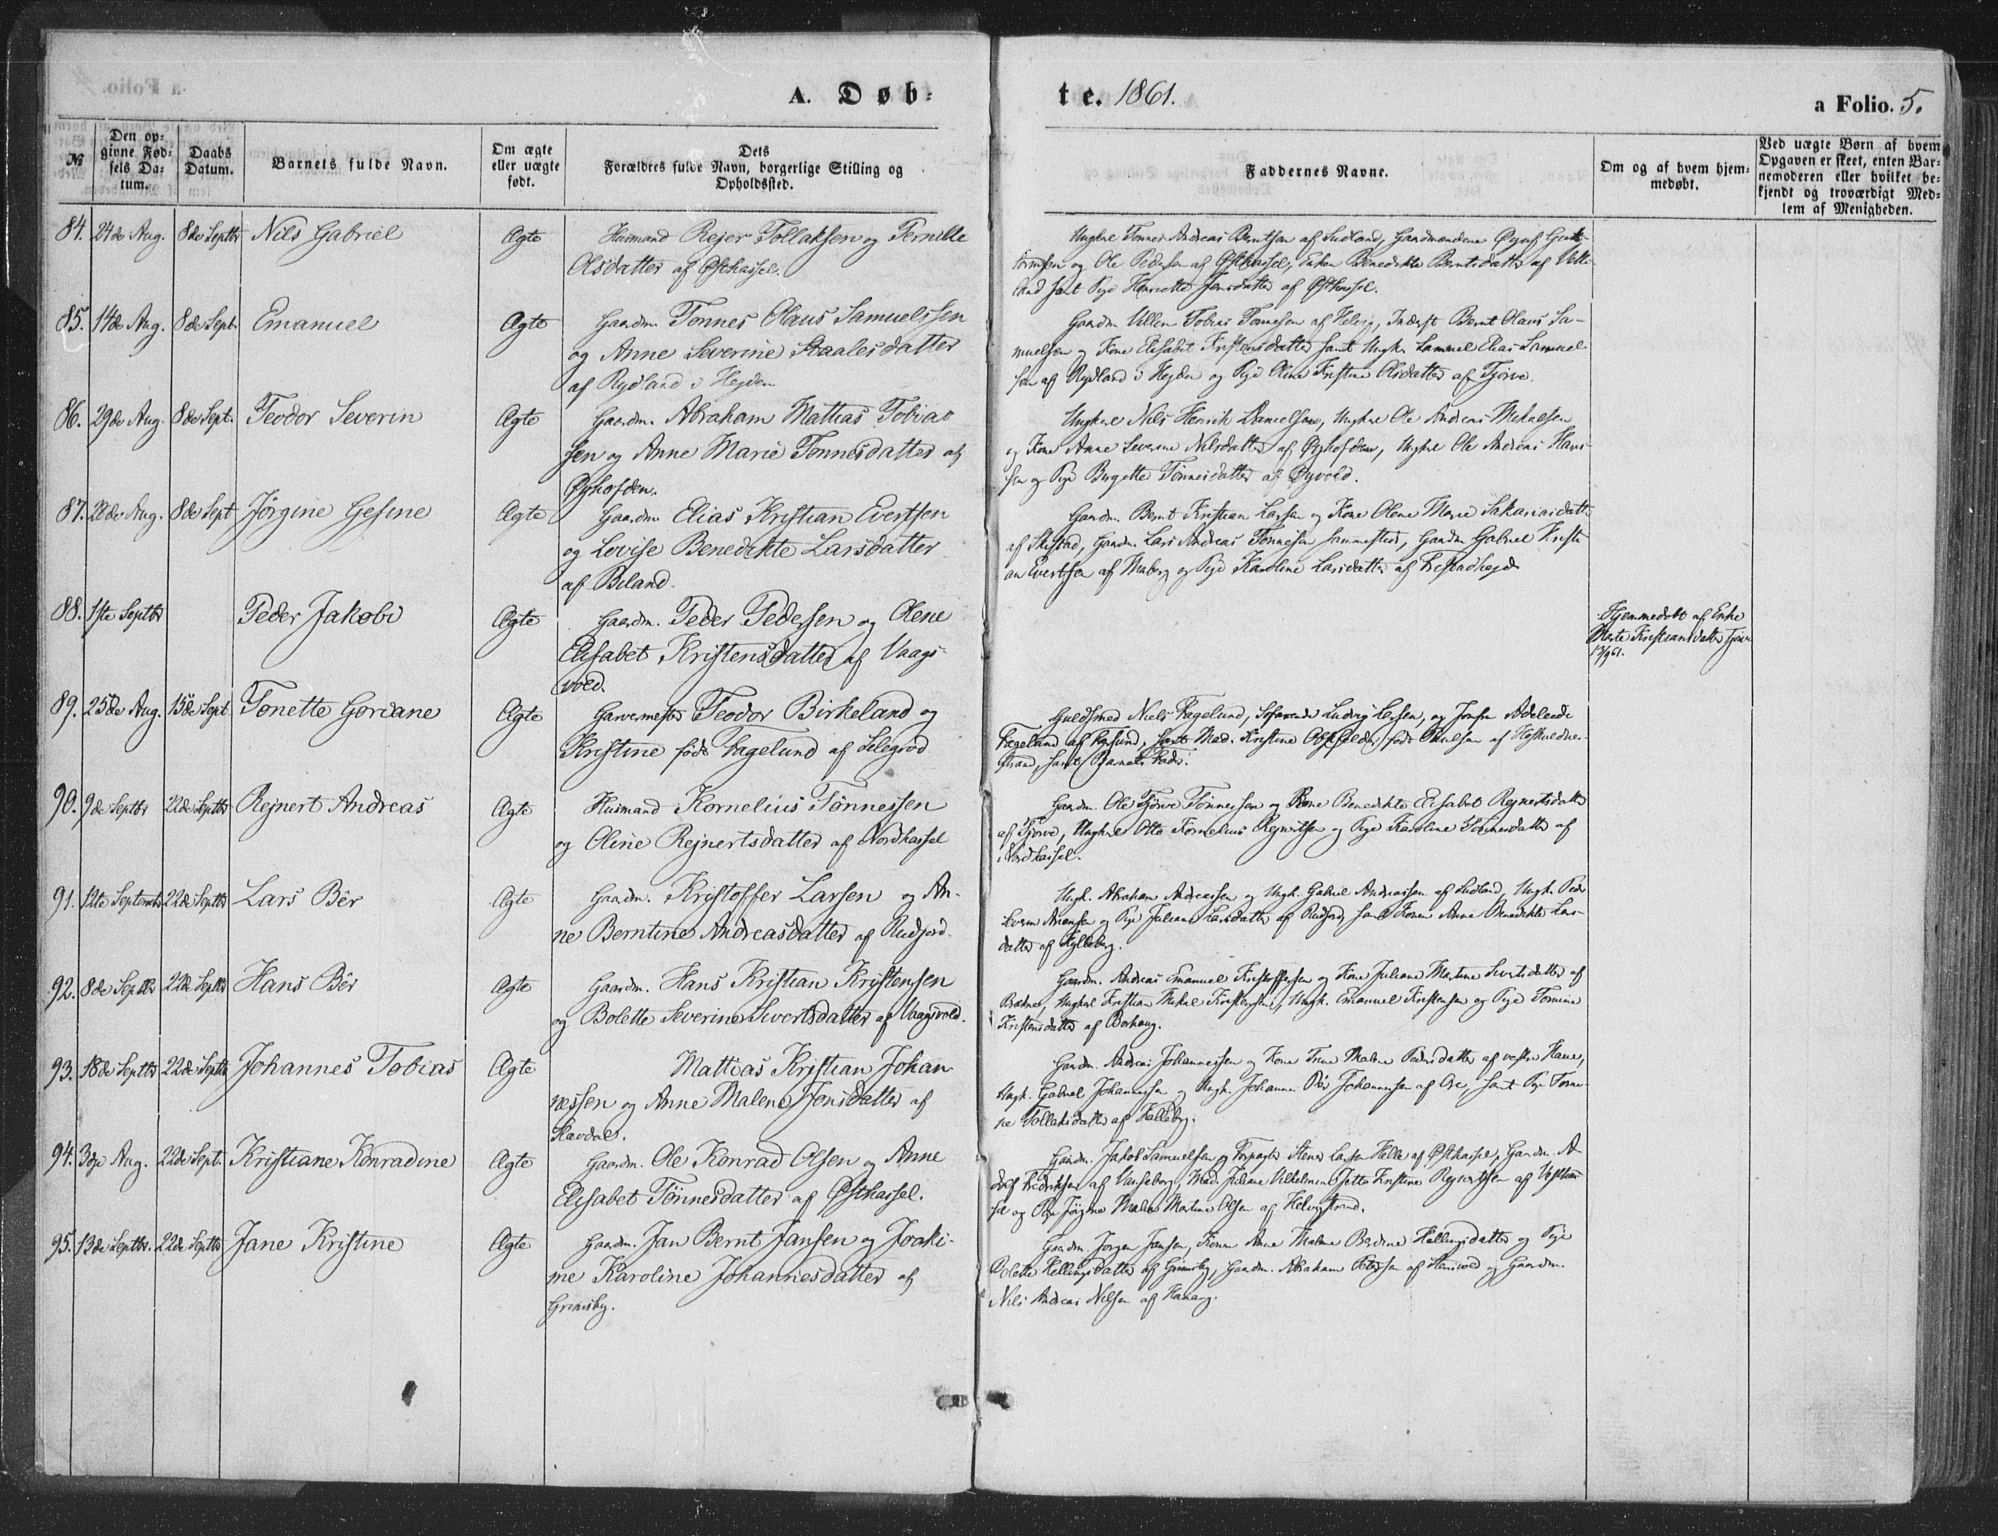 A. Døb-
te. 1861.
a Folio. 5.
№
Den op-
givne Fød-
sels Da-
tum.
Daabs
Datum.
Barnets fulde Navn.
Om ægte
eller uægte
født.
Dets
Forældres fulde Navn, borgerlige Stilling og
Opholdssted.
Faddernes Navne.
Om og af hvem hjem-
medøbt.
Ved uægte Børn af hvem
Opgaven er skeet, enten Bar-
nemoderen eller hvilket be-
kjendt og troværdigt Med-
lem af Menigheden.
84. 24de Aug. 8de Septbr Nils Gabriel Ægte Husmand Rejer Tollaksen og Pernille
Olsdatter af Østhassel.
Ungkrl Tønnes Andreas Berntsen af Sudland, Gaardmændene
og Ole Pedersen af Østhassel, Enken Benedikte Berntsdatter af Velle-
land samt Pige Henriette Jensdatter af Østhassel.
85. 14de Aug. 8de Sept. Emanuel Ægte Gaardm. Tønnes Olaus Samuelssen
og Anne Severine Staalesdatter
af Rydland i Hejden
Gaardm Villem Tobias Tønnesen af Helvig, Inderst Bernt Olaus Sa-
muelsen og Kone Elisabet Kristensdatter samt Ungk. Samuel Elias Samuel-
sen af Rydland i Hejden og Pige Oline Kristine Olsdatter af Tjørve.
86. 29de Aug. 8de Sept. Teodor Severin Ægte Gaardm. Abraham Mattias Tobias
sen og Anne Marie Tønnesdatter af
Øyhofden.
Ungkrl Nils Henrik Danielsen, Ungkrl Ole Andreas Mikaelsen
og Kone Anne Severine Nilsdatter af Øyhofden, Ungkrl Ole Andreas Hans-
sen og Pige Birgitte Tønnesdatter af Øyvold.
87. 28de Aug. 8de Sept Jørgine Gesine Ægte Gaardm. Elias Kristian Evertsen
og Lovise Benedikte Larsdatter
af Biland.
Gaardm Bernt Kristian Larsen og Kone Olene Marie Sakariasdatter
af Skistad, Gaardm. Lars Andreas Tønnesen sammesteds, Gaardm Gabriel Kristi-
an Evertsen af Maberg og Pige Karoline Larsdatter af
88. 1ste Septbr Peder Jakobi Ægte Gaardm. Peder Pedersen og Olene
Elisabet Kristensdatter af Vaags-
vold.
Hjemmedøbt af Enke
Marte Kristiansdatter
13/9 61.
89. 25de Aug. 15de Sept Tonette Goriane Ægte Garvermester Teodor Birkeland og
Kristine født Fagelund af Selegrod
Guldsmed Niels Fagelund, Søfarende Ludvig Larsen, og Jomfru Adeleide
Fagelund af Farsund, samt Mad. Kristine født Poulsen af
strand, samt Barnets Fader.
90. 9de Septbr 22de Septbr Rejnert Andreas Ægte Husmand Kornelius Tønnessen
og Oline Rejnertsdatter af Nordhassel
Gaardm. Ole Tjørve Tønnessen og Kone Benedikte Elisabet Rejnertsdatter
af Tjørve, Ungkrl Otto Kornelius Rejnertsen og Pige Karoline Tønnesdatter af
Nordhassel.
91. 12te Septembr 22de Septbr Lars Bër Ægte Gaardm. Kristoffer Larsen og An-
ne Berntine Andreasdatter af Rudjord
Ungk. Abraham Andreassen og Ungk. Gabriel Andreassen af Sudland, Ungk. Peder
og Pige Juliane Larsdatter af Rudjord, samt Konen Anne Benedikte Lars-
datter af Kylleberg.
92. 8de Septbr 22de Septbr Hans Bër Ægte Gaardm. Hans Kristian Kristensen
og Bolette Severine Sivertsdatter af Vaagsvold.
Gaardm. Andreas Emanuel Kristoffersen og Kone Juliane Martine Sivertsdatter af
Brækne, Ungkrl Kristian Mikal Kristensen, Ungk. Emanuel Kristensen og Pige Tomine
Kristensdatter af Borhaug.
93. 18de Septbr 22de Septbr Johannes Tobias Ægte Mattias Kristian Johan
nessen og Anne Malene Jonsdatter af
Slavdal.
Gaardm. Andreas Johannessen og Kone Trine Malene Pedersdatter af vestre Haue,
Ungk. Gabriel Johannessen og Ungk. Johannes Bër Johannessen af Ore, samt Pige Tomi-
ne Tollaksdatter af
94. 3die Aug. 22de Sept. Kristiane Konradine Ægte Gaardm. Ole Konrad Olsen og Anne
Elisabet Tönnesdatter af Østhassel.
Gaardm. Jakob Samuelsen og Forpagter Stener Larsen Kille af Østhassel, Gaardm. A-
dolf Fredriksen af Vanseberg, Mad. Juliane Vilhelmine Jette Kristine Rejnertsen af Vesthas-
sel og Pige Jørgine Malene Martine Olsen af Helvigstrand.
95. 13de Septbr. 22de Septbr Jane Kristine Ægte Gaardm. Jan Bernt Jansen og Joaki-
me Karoline Johannesdatter af
Grimsby.
Gaardm. Jørgen Jansen, Konen Anne Malene Berdine Hellingsdatter og Pige
Bolette Hellingsdatter af Grimsby, Gaardm. Abraham Petersen af og Gaardm.
Nils Andreas Nilsen af Hanang.